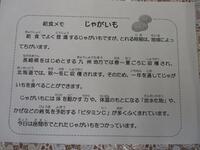 給食メモ　じゃがいも
給食でよく登場するじゃがいもですが、とれる時期は、地域によっ
てちがいます。
長崎県をはじめとする九州地方では春～夏ごろに収穫され、
北海道では、秋～冬に収穫されます。そのため、一年を通してじゃが
いもを食べることができます。
じゃがいもには体を動かす力や、体温のもとになる「炭水化物」や、
かぜなどの病気を予防する「ビタミンC」が多くふくまれています。
今日は長崎市でとれたじゃがいもをつかっています。